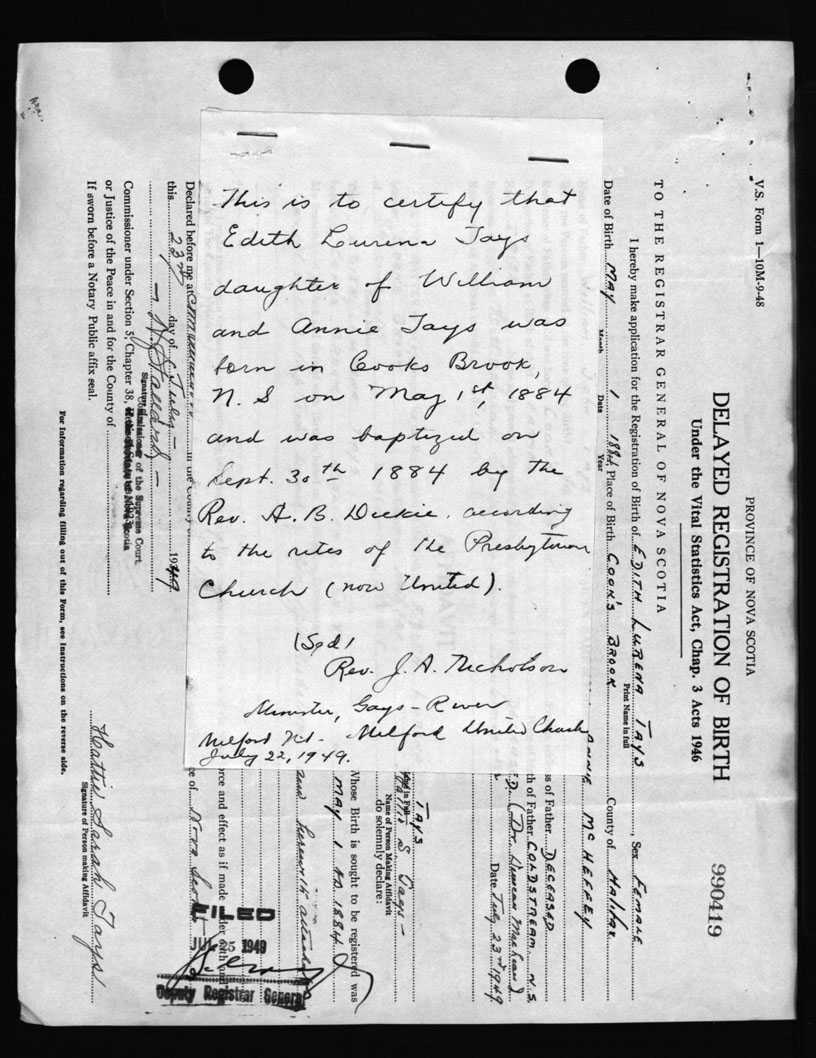 This is to certify that
Edith Lurena Tays
daughter of William
and Annie Tays was
born in Cooks Brook,
N. S on May 1st, 1884
and was baptized on
Sept. 30th 1884 by the
Rev. A. B. Dickie, according
to the rites of the Presbyterian
Church (now United).
(Sgd)
Rev. J. A. Nicholson
Minister, Gays-River
Milford Milford United Church
July 22, 1949.
V.S. Form 1—10M-9-48
PROVINCE OF NOVA SCOTIA
DELAYED REGISTRATION OF BIRTH
990419
Under the Vital Statistics Act, Chap. 3 Acts 1946
TO THE REGISTRAR GENERAL OF NOVA SCOTIA
I hereby make application for the Registration of Birth of EDITH LURENA TAYS, Sex FEMALE
Print Name in full
Date of Birth MAY 1 1884, Place of Birth COOK'S BROOK County of HALIFAX
Month Date Year
ANNIE McHEFFEY
of Father DECEASED
of Father COLDSTREAM, N.S.
D. (Dr. Duncan )
Date July 23rd 1949
TAYS
Hattie S. Tays
Name of Person Making Affidavit
do solemnly declare:
Whose Birth is sought to be registered was
MAY 1 A.D. 1884
herewith attached
force and effect as if made under oath
of Nova Scotia
FILED
JUL 25 1949
Deputy Registrar General
Declared before me at in the County
this 23rd day of July 1949
Commissioner of the Supreme Court
Commissioner under Section 5, Chapter 38,
or Justice of the Peace in and for the County of
If sworn before a Notary Public affix seal.
Hattie Sarah Tays
Signature of Person making Affidavit
For Information regarding filling out of this Form, see Instructions on the reverse side.